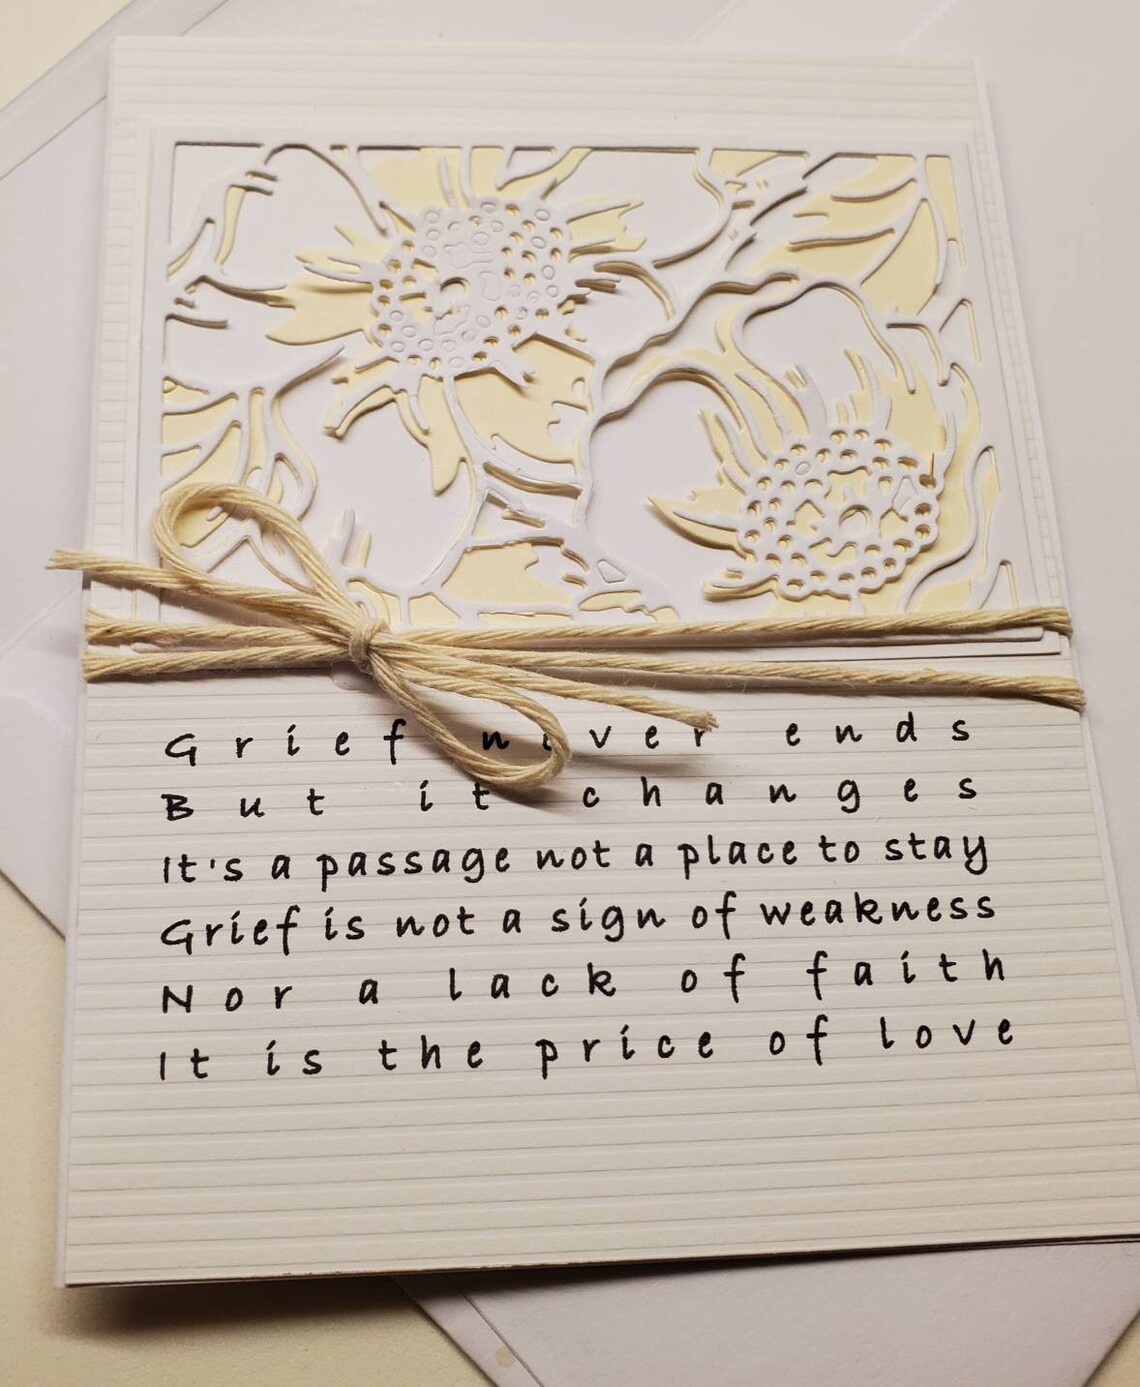 Grief never ends
But it changes
It's a passage not a place to stay
Grief is not a sign of weakness
Nor a lack of faith
It is the price of love